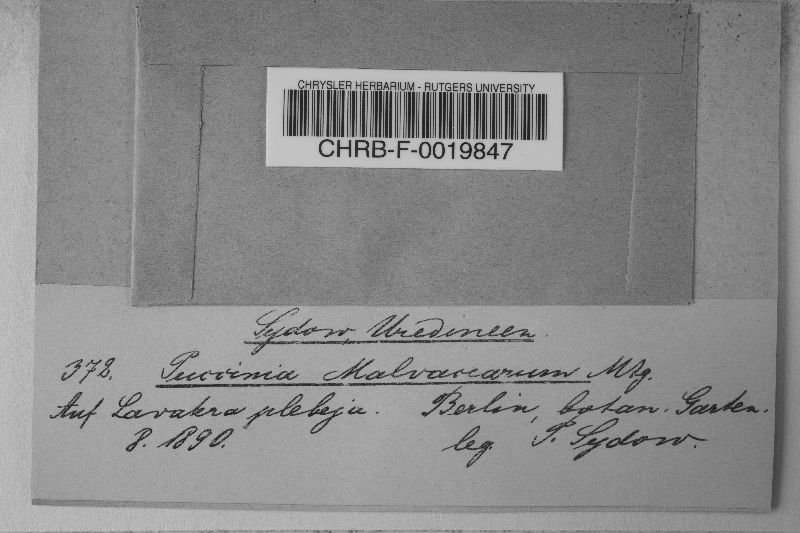 CHRYSLER HERBARIUM - RUTGERS UNIVERSITY
CHRB-F-0019847
Sydow, Uredineen.
378. Puccinia Malvacearum Mtg.
Auf Lavatera plebeja. Berlin, botan. Garten.
8. 1890. leg. P. Sydow.